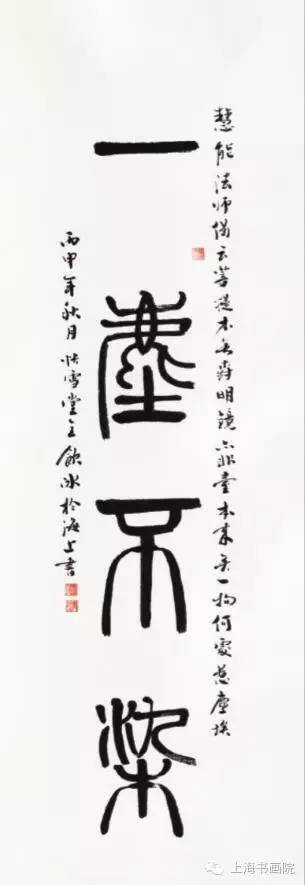 慧能法师偈云菩提本无樹明镜亦非臺本来无一物何處惹塵埃
一塵不染
丙申年秋月快雪堂主飲冰於海上書
上海书画院